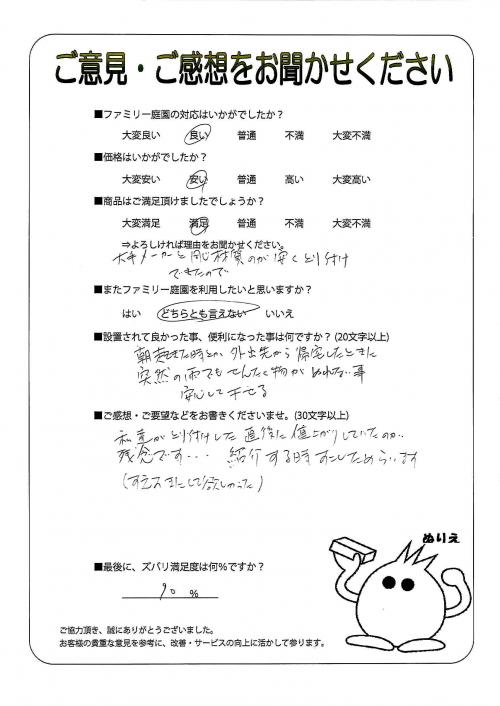 ご意見・ご感想をお聞かせください
■ファミリー庭園の対応はいかがでしたか？
大変良い 良い 普通 不満 大変不満
■価格はいかがでしたか？
大変安い 安い 普通 高い 大変高い
■商品はご満足頂けましたでしょうか？
大変満足 満足 普通 不満 大変不満
⇒よろしければ理由をお聞かせください。
大手メーカーと同じ材質のが安くとり付け
できたので
■またファミリー庭園を利用したいと思いますか？
はい どちらとも言えない いいえ
■設置されて良かった事、便利になった事は何ですか？(20文字以上)
朝起きた時とか、外出先から帰宅したときに
突然の雨でもせんたく物がぬれない事
安心して干せる
■ご感想・ご要望などをお書きくださいませ。(30文字以上)
私達がとり付けした直後に値上がりしていたのが、
残念です・・・ 紹介する時すこしためらいます
(すえおきにして欲しかった)
ぬりえ
■最後に、ズバリ満足度は何％ですか？
90 %
ご協力頂き、誠にありがとうございました。
お客様の貴重な意見を参考に、改善・サービスの向上に活かして参ります。